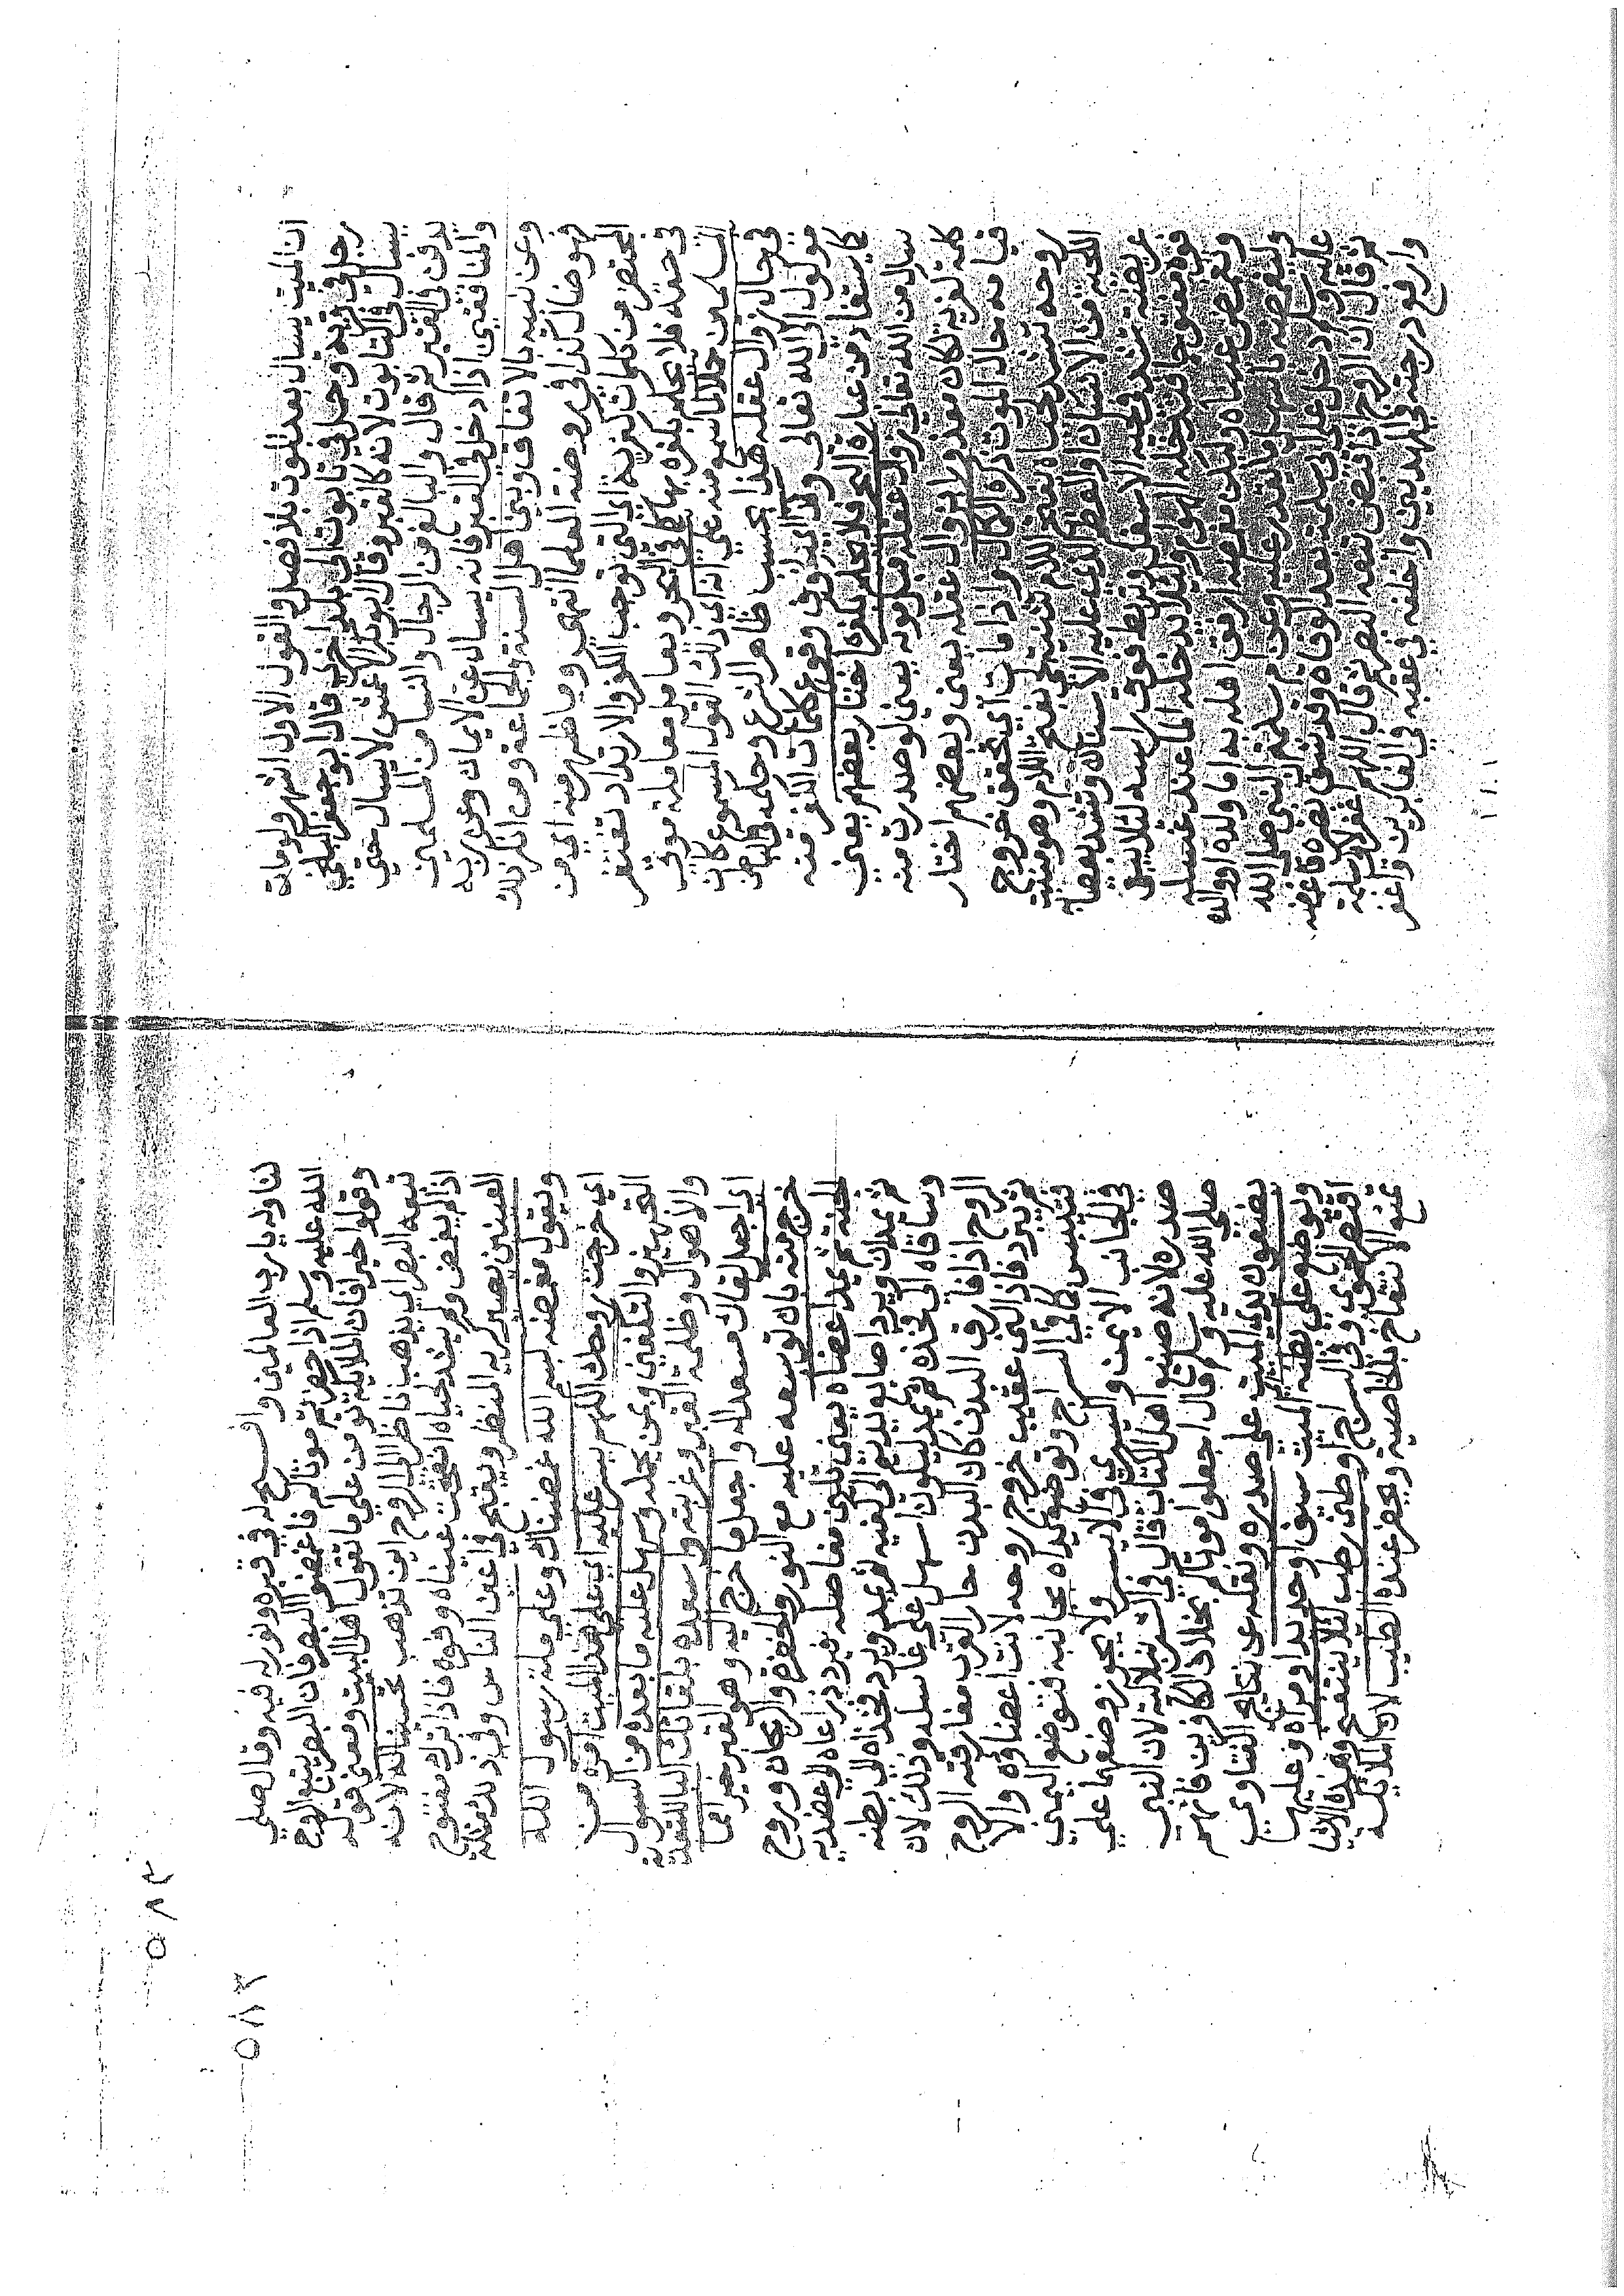 ان الميت يسال بعد الموت بلا فصل والقول الاول اشهر ولو مات
رجل في قرية وحمل في تابوت الى بلد اخرى قال ابو جعفر البلخي
يسال في التابوت لانه كالقبر وقال ابو بكر الاعمش لا يسال حتى
يدفن في القبر ثم قال والبالغ من الرجال والنسا من المسلمين
والمنافقين اذا دخل في القبر فانه يسال عن الايمان وعن ربه
وعن نبيه بالاتفاق وبين اهل السنة والجماعة ومن انكر ذلك
فهو ضال كذا في روضة العلما انتهى وما ظهر منه اي من
المحتضر من كلمات كفرية اي التي توجب الكفر والارتداد تغتفر
في حقه فلا يحكم بكفره بها كما في البحر ويعامل معاملة موتى
المسلمين حملا لما سمع منه على انه اي ذلك القول المسموع كان
في حال زوال عقله هذا بحسب ظاهر الشرع وحكمه في الباطن
موكول الى الله تعالى وقد اي نزوق وقوع كلمات الكفر منه
كما يستفاد من عبارة البحر فلا يحكم بكفره اختار بعضهم يعني
سال من الله تعالى زوال عقله قبل موته يعني لو صدرت منه
كلمة كفرية كان معذورا بزوال عقله يعني وبعضهم اختار
قيامه حال الموت ذكره الكمال واذا مات اي تحقق خروج
روحه تشد لحياه بفتح اللام تثنية لحي بفتح اللام وهو منبت
اللحية من الانسان او العظم الذي عليه الاسنان وتشد بعصابة
عريضة تشد في لحيه الاسفل وتربط فوق راسه لئلا يبقى
فوه مفتوحا فتدخله الهوام ولئلا يدخله الما عند غسله
وتغمض عيناه وليكن مغمضه ارفق اهله به اما ولده او والده
وليغمضه باسهل ما يقدر عليه وعن ام سلمة ان النبي صلى الله
عليه وسلم دخل على ابي سلمة بعد الوفاة وقد شق بصره فاغمضه
ثم قال ان الروح اذا قبض تبعه البصر ثم قال اللهم اغفر لابي سلمة
وارفع درجته في المهديين واخلفه في عقبه في الغابرين واغفر
لنا وله يا رب العالمين وافسح له في قبره ونور له فيه وقال صلى
الله عليه وسلم اذا حضرتم موتاكم فاغمضوا البصر فان البصر يتبع الروح
وقولوا خيرا فان الملايكة تومن على ما تقول اهل البيت ومعنى قوله
تبعه البصر اي يذهب ناظرا الى الروح اين تذهب لانه
اذا لم يغمض ولم يشد لحياه انفتحت عيناه وفوه فاذا ترك مفتوح
العينين يصير كريه المنظر ويقبح في اعين الناس
ويقول مغمضه بسم الله غمضناك وعلى ملة رسول الله
اي خرجت روحك اللهم يسر عليه اي على هذا الميت امره من
التجهيز والتكفين ومن يحمله وسهل عليه ما بعده من السوال
والاهوال وظلمة القبر وغربته واسعده بلقائك
اي اجعل لقاك مسعدا له واجعل ما خرج اليه وهو القبر خيرا مما
خرج منه بان توسعه عليه مع النور والخضرة والريحان وروح
الجنة ثم يمد اعضاه يعني تلين مفاصله فيرد ذراعاه الى عضديه
ثم يمدان ويرد اصابع يديه الى كفيه ثم يمد ويرد فخذاه الى بطنه
وساقاه الى فخذه ثم يمد ليكون اسهل على غاسله وذلك لان
الروح اذا فارق البدن كان البدن حارا لقرب مفارقته الروح
ثم يبرد فاذا لين عقيب خروج روحه لانت اعضاؤه والا
فتيبس كما في السراج وتوضع يداه بجانبه فتوضع اليمنى
في الجانب الايمن واليسرى في الايسر ولا يجوز وضعهما على
صدره لانه صنيع اهل الكتاب قال في الشرنبلالية لان النبي
صلى الله عليه وسلم قال اجعلوا موتاكم بخلاف الكافرين فانهم
يضعون يدي الميت على صدره ونقله عن نتايج الفتاوى
ويوضع على بطنه الميت سيف او حديد او مراة وعليها
اقتصر العيني وفي السراج او طين رطب لئلا ينتفخ وهذه الاشيا
تمنع الانتفاخ بالخاصية ويحضر عنده الطيب لان الملايكة
٥٨٣
٥٨٣